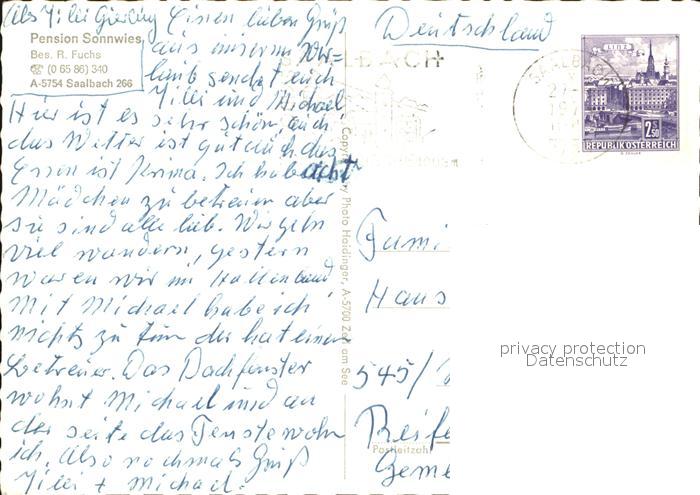 Deutschland
Einen lieben Gruß
aus unserm Ur=
laub sendet euch
und Michael
Pension Sonnwies
Bes. R. Fuchs
☎ (0 65 86) 340
A-5754 Saalbach 266
Hier ist es sehr schön, auch
das Wetter ist gut auch das
Essen ist prima. Ich habe acht
Mädchen zu betreuen aber
sie sind alle lieb. Wir gehn
viel wandern, gestern
waren wir im Hallenbad
Mit Michael habe ich
nichts zu tun der hat einen
Betreuer. Das Dachfenster
wohnt Michael und an
der seite das Fenster wohn
ich. Also nochmals Gruß
+ Michael.
Copyright by Photo Haidinger, A-5700 Zell am See
SAALBACH
LINZ
2.50
REPUBLIK ÖSTERREICH
Fami
Hans
545/
Postleitzahl
Reife
Geme
privacy protection
Datenschutz